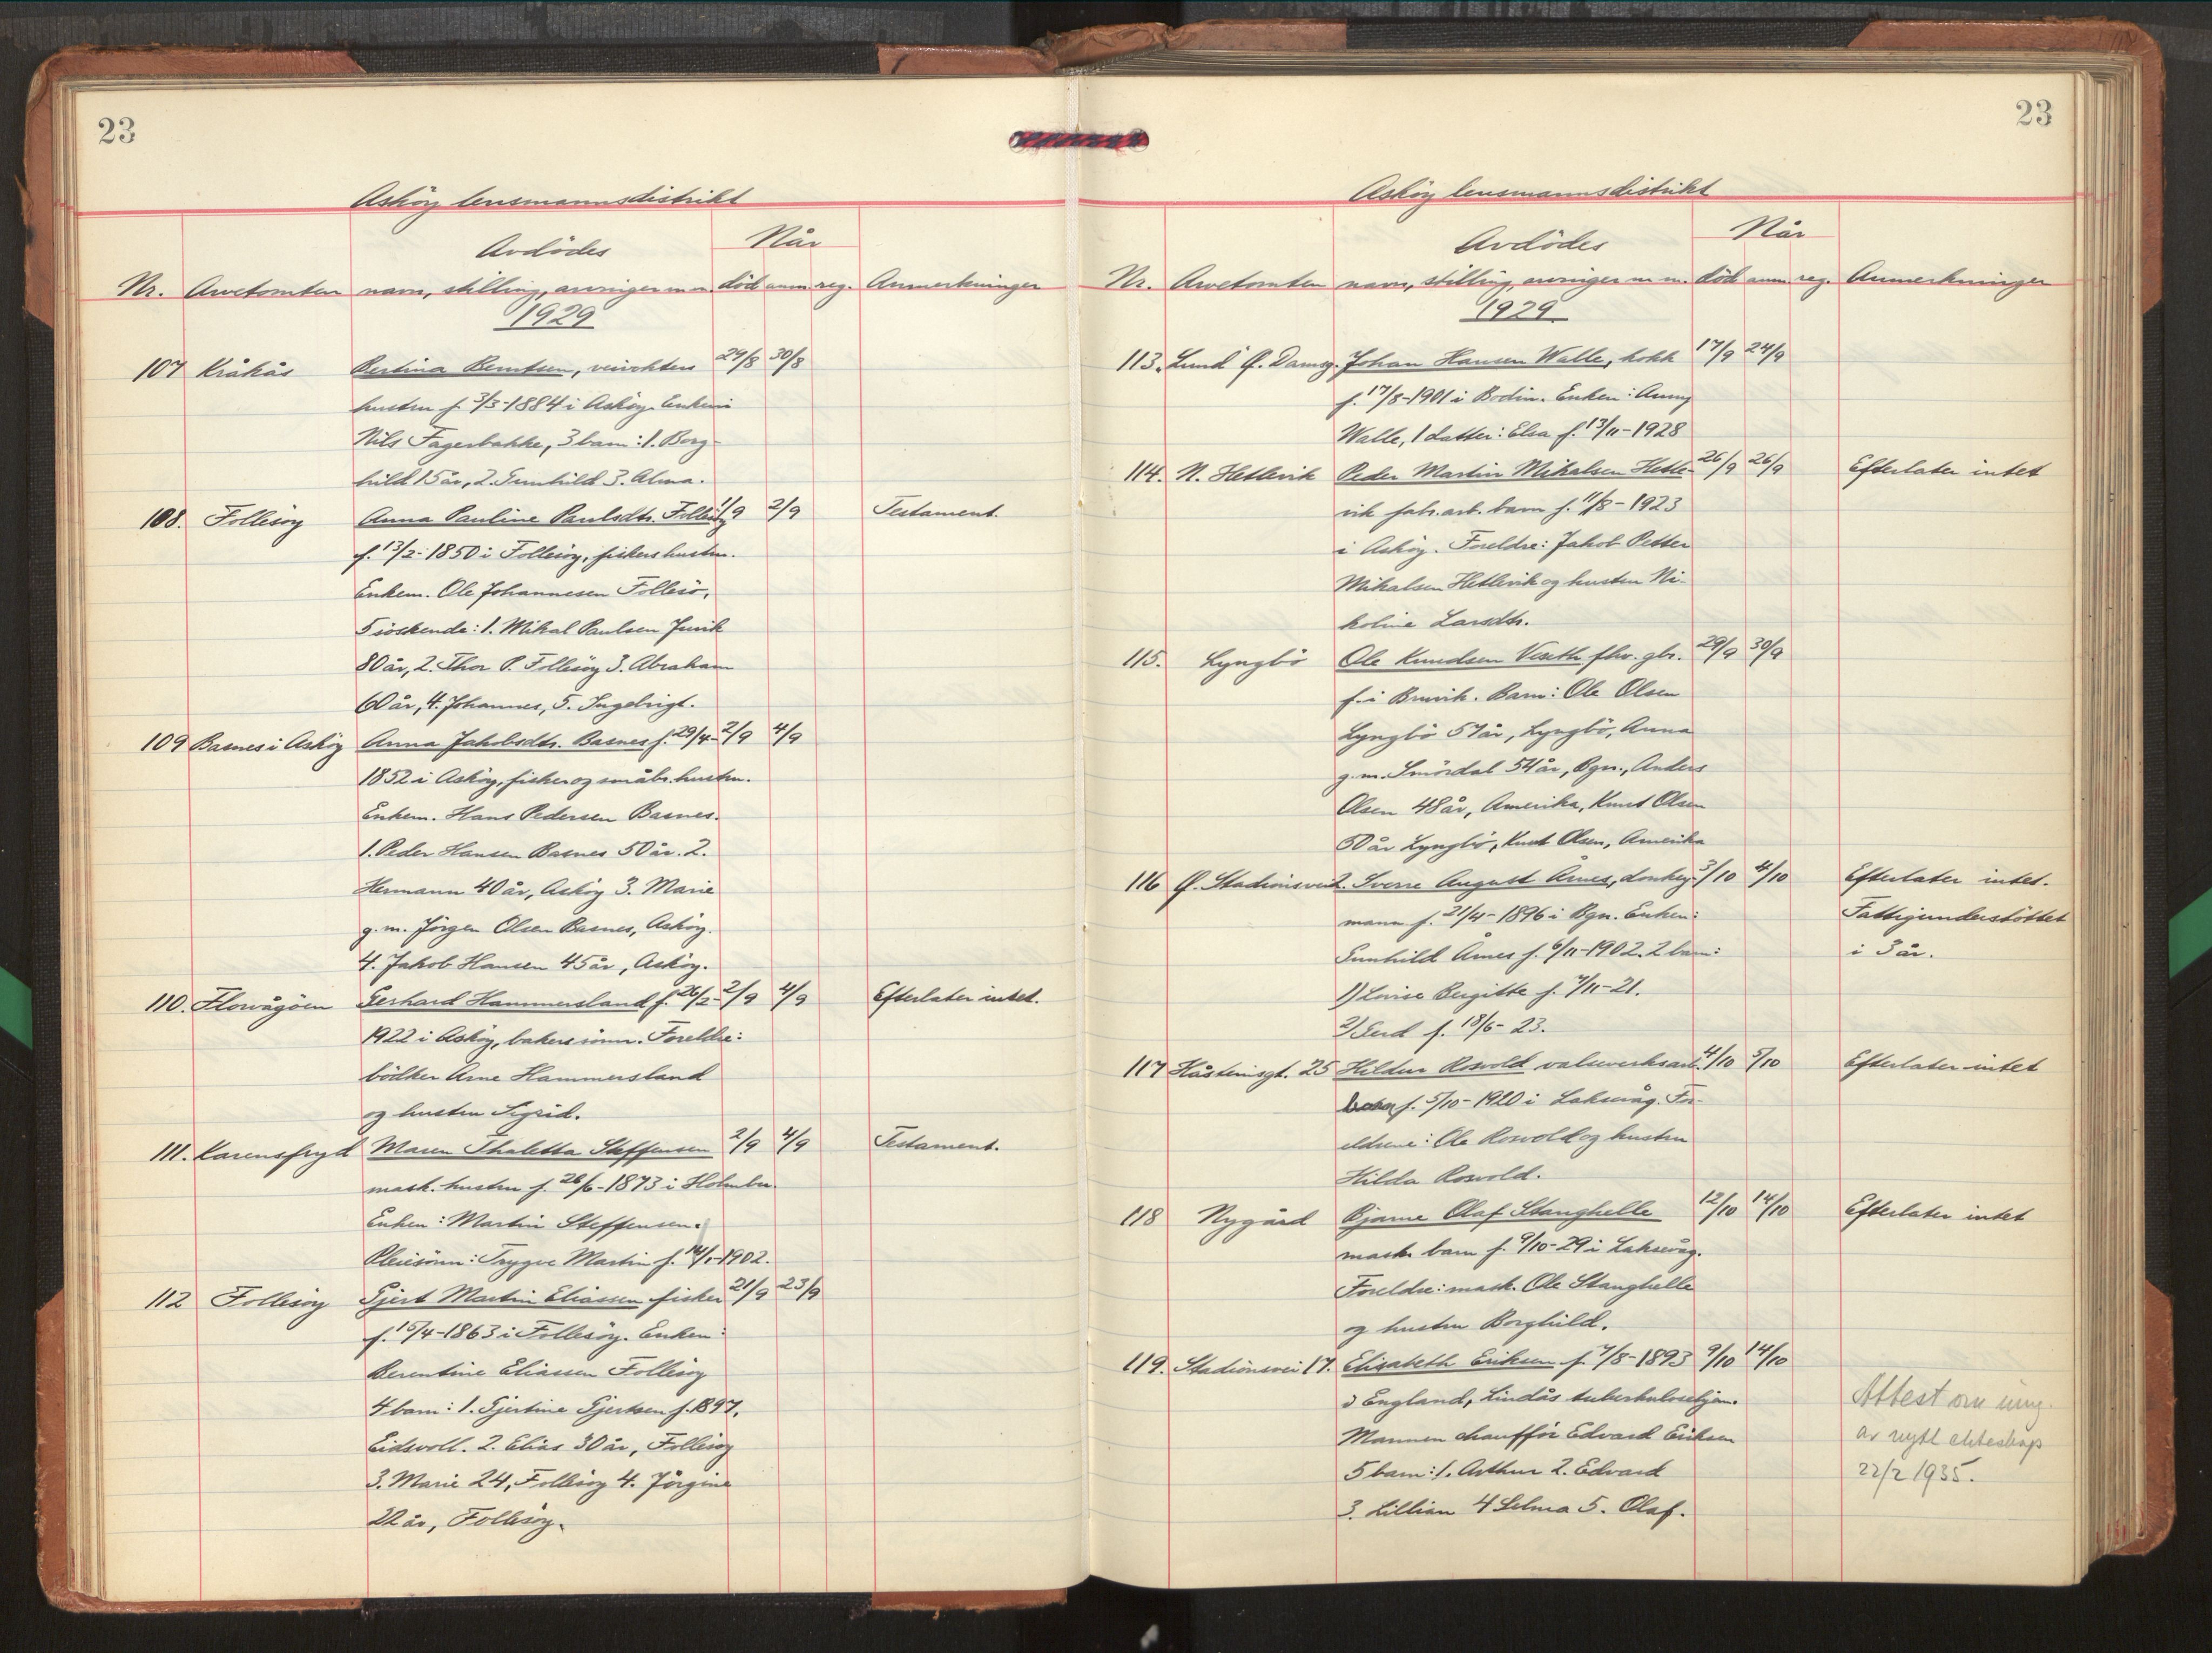 23
Askøy lensmannsdistrikt
Avdødes
Når
Nr. Arvetomten navn, stilling, arvinger m m. død anm reg. Anmerkninger
1929
107 Kråkås Bertina Berntsen, 29/8 30/8
hustru f. 3/3-1884 i Askøy. Enkem
Nils Fagerbakke, 3 barn: 1. Borg-
hild 15 år, 2. Gunhild 3. Alma.
108. Follesøy Anna Pauline Paulsdtr. Follesøy 1/9 2/9 Testament.
f. 13/2-1850 i Follesøy, fiskers hustru.
Enkem. Ole Johannesen Follesø,
5 søskende: 1. Mikal Paulsen Juvik
80 år, 2. Thor P. Follesøy 3. Abraham
60 år, 4. Johannes, 5. Ingebrigt.
109 Basnes i Askøy Anna Jakobsdtr. Basnes f. 29/4- 2/9 4/9
1852 i Askøy, fisker og småbr. hustru.
Enkem. Hans Pedersen Basnes.
1. Peder Hansen Basnes 50 år. 2.
Hermann 40 år, Askøy 3. Marie
g. m. Jørgen Olsen Basnes, Askøy.
4. Jakob Hansen 45 år, Askøy.
110. Florvågøen Gerhard Hammersland f. 26/2- 2/9 4/9 Efterlater intet.
1922 i Askøy, bakers sønn. Foreldre:
bødker Arne Hammersland
og hustru Sigrid.
111. Karensfryd Maren Thaletta Steffensen 2/9 4/9 Testament.
mask. hustru f. 26/6-1873 i Holmebu.
Enken: Martin Steffensen.
Pleiesønn: Trygve Martin f. 14/1-1902.
112 Follesøy Gjert Martin Eliassen fisker 21/9 23/9
f. 15/4-1863 i Follesøy. Enken:
Berentine Eliassen Follesøy
4 barn: 1. Gjertine Gjertsen f. 1897,
Eidsvoll. 2. Elias 30 år, Follesøy
3. Marie 24, Follesøy 4. Jørgine
22 år, Follesøy.
23
Askøy lensmannsdistrikt
Avdødes
Når
Nr. Arvetomten navn, stilling, arvinger m m. død anm reg. Anmerkninger
1929
113. Lund Ø. Damsg. Johan Hansen Walle, kokk 17/9 24/9
f. 17/8-1901 i Bodin. Enken: Anny
Walle, 1 datter: Elsa f. 13/11-1928
114. N. Hetlevik Peder Martin Mikalsen Hetle- 26/9 26/9 Efterlater intet
vik fabr.arb. barn f. 11/8-1923
i Askøy. Foreldre: Jakob Petter
Mikalsen Hetlevik og hustru Ni-
koline Larsdtr.
115. Lyngbø Ole Knudsen Veseth fhv. gbr. 29/9 30/9
f. i Bruvik. Barn: Ole Olsen
Lyngbø 57 år, Lyngbø, Anna
g. m. Smørdal 54 år, Bgn., Anders
Olsen 48 år, Amerika, Knut Olsen
50 år Lyngbø, Knut Olsen, Amerika
116 Ø. Stadionsvei 2. Sverre August Årnes, donkey- 3/10 4/10 Efterlater intet.
mann f. 21/4-1896 i Bgn. Enken: Fattigunderstøttet
Gunhild Årnes f. 6/11-1902. 2 barn: i 3 år.
1) Lovise Bergitte f. 7/11-21.
2) Gerd f. 18/6-23.
117 Håsteinsgt. 25 Hildur Rosvold valseverksarb. 4/10 5/10 Efterlater intet
f. 5/10-1920 i Laksevåg. For-
eldrene: Ole Rosvold og hustru
Hilda Rosvold.
118 Nygård Bjarne Olaf Stanghelle 12/10 14/10 Efterlater intet
mask. barn f. 9/10-29 i Laksevåg.
Foreldre: mask. Ole Stanghelle
og hustru Borghild.
119. Stadionsvei 17. Elisabeth Eriksen f. 7/8-1893 9/10 14/10
i England, Lindås tuberkulosehjem.
Mannen chauffør Edvard Eriksen
5 barn: 1. Arthur 2. Edvard
3. Lillian 4 Selma 5. Olaf.
Attest om inng.
av nytt ekteskap
22/2 1935.